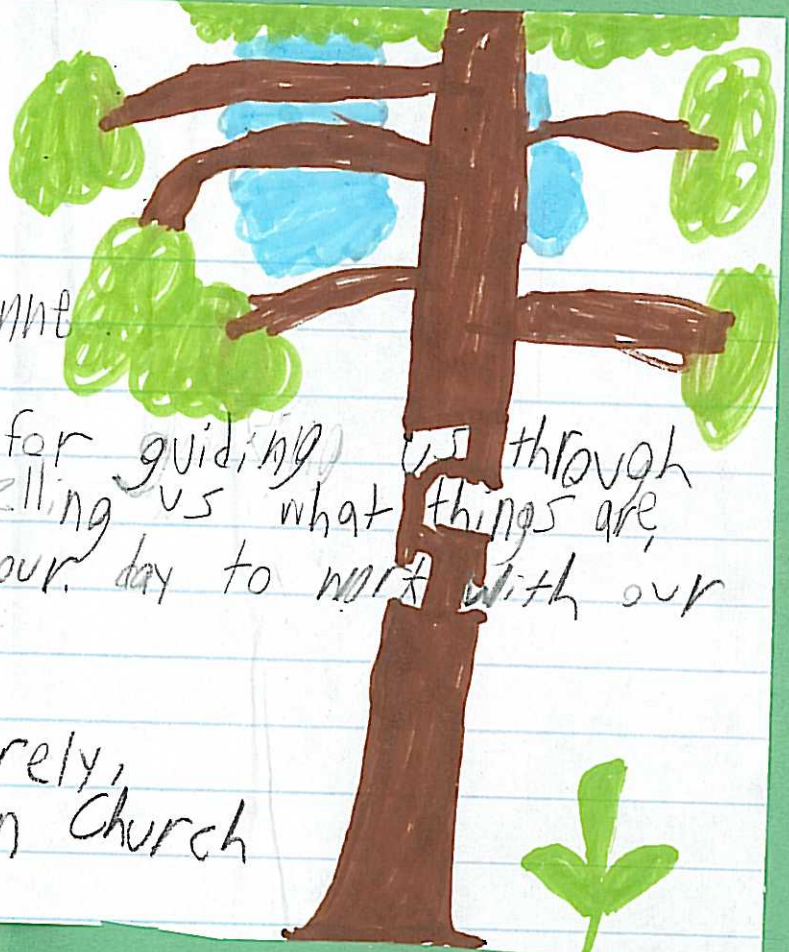 nne
for guiding us through
lling us what things are,
our day to work with our
rely,
n Church